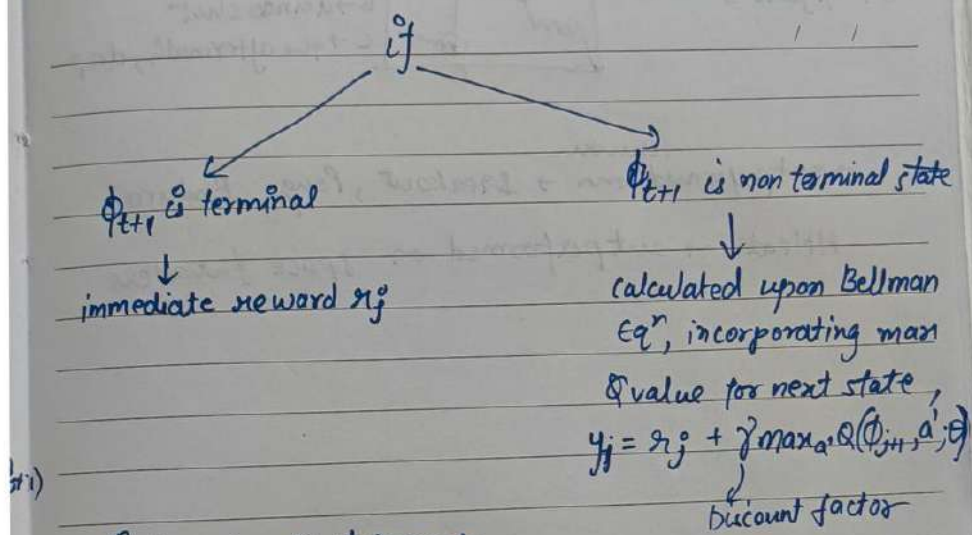 if
ϕt+1 is terminal
immediate reward rj
ϕt+1 is non terminal state
calculated upon Bellman
Eqn, incorporating max
Q value for next state,
yj = rj + γ maxa' Q(ϕj+1, a'; θ)
Discount factor